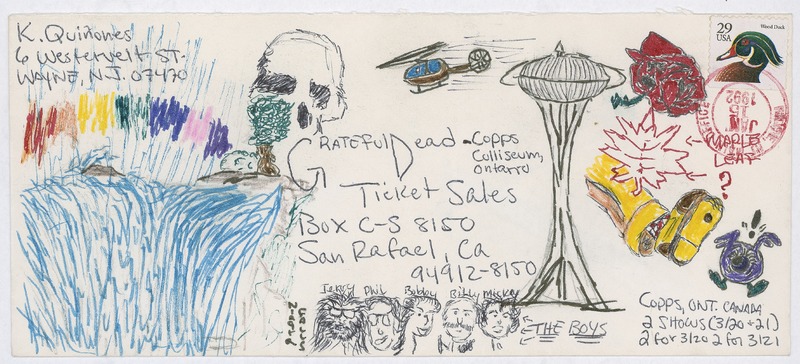 K. Quiñones
6 Westervelt ST.
WAYNE, N.J. 07470
29
USA
Wood Duck
1992
GRATEFUL Dead - Copps
Colliseum,
Ontario
Ticket Sales
Box C-S 8150
San Rafael, Ca
94912-8150
MAPLE
LEAF
?
!
Jerry Phil Bobby Billy Mickey
THE BOYS
COPPS, ONT. CANADA
2 SHOWS (3/20+21)
2 for 3/20 2 for 3/21